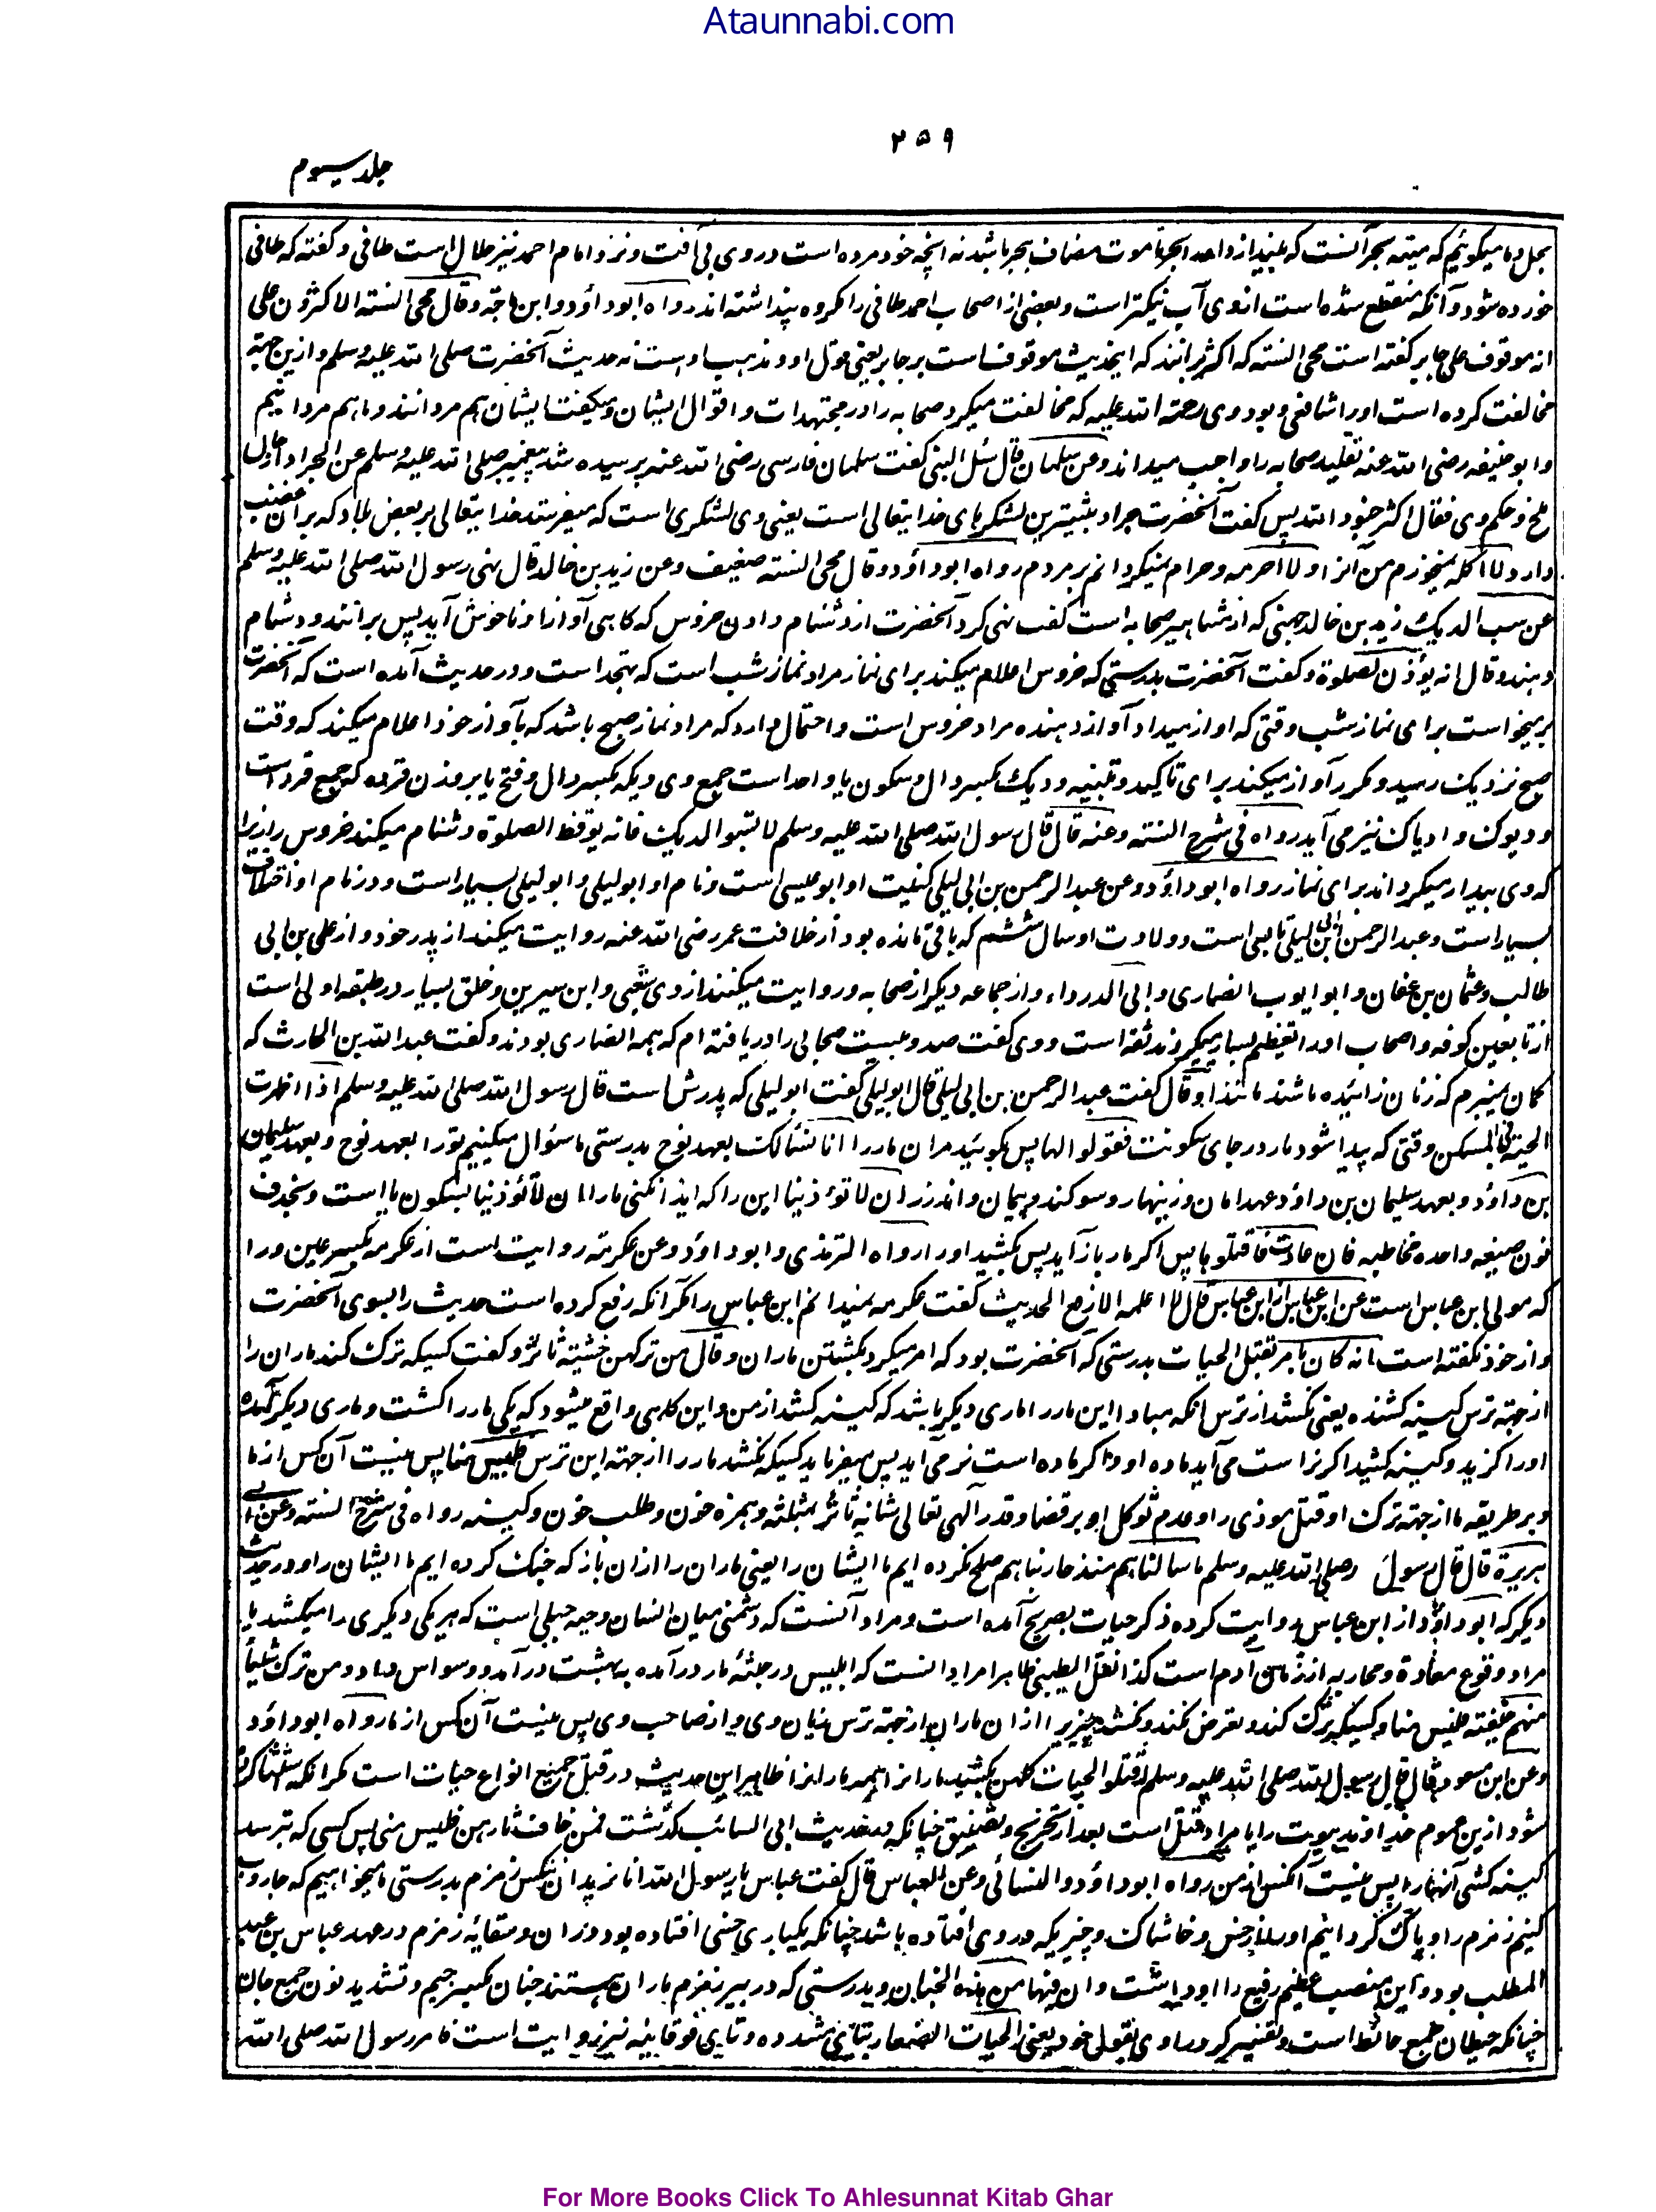 Ataunnabi.com
۲۵۹
جلد سیوم
بجل و ما میگوئیم که میته بحر آنست که بیندازد او را بحر تا موت مضاف ببحر باشد نه آنچه خود مرده است در وی بی آفت و نزد امام احمد نیز حلال است طافی و گفته که طافی
خورده شود و آنکه منقطع شده است از وی آب نیکتر است و بعضی از اصحاب احمد طافی را مکروه پنداشته اند رواه ابو داؤد و ابن ماجه و قال محی السنته الاکثرون علی
انه موقوف علی جابر گفته است محی السنته که اکثر برانند که اینحدیث موقوف است بر جابر یعنی قول او و مذهب اوست نه حدیث آنحضرت صلی الله علیه وسلم و ازین جهته
مخالفت کرده است او را شافعی و بود وی رحمة الله علیه که مخالفت میکرد صحابه را در مجتهدات و اقوال ایشان و میگفت ایشان هم مردانند و ما هم مردانیم
و ابو حنیفه رضی الله عنه تقلید صحابه را واجب میداند وعن سلمان قال سئل النبی گفت سلمان فارسی رضی الله عنه پرسیده شد پیغمبر صلی الله علیه وسلم عن الجراد از حال
ملخ و حکم وی فقال اکثر جنود الله پس گفت آنحضرت جراد بیشترین لشکرهای خدایتعالی است یعنی وی لشکری است که میفرستد خدایتعالی بر بعض بلاد که بران غضب
دارد لا آکله نمیخورم من آنرا و لا احرمه و حرام نمیگردانم بر مردم رواه ابو داؤد و قال محی السنته ضعیف وعن زید بن خالد قال نهی رسول الله صلی الله علیه وسلم
عن سب الدیک زید بن خالد جهنی که از مشاهیر صحابه است گفت نهی کرد آنحضرت از دشنام دادن خروس که گاهی آواز او ناخوش آید پس برانند و دشنام
دهند وقال انه یؤذن للصلوة و گفت آنحضرت بدرستی که خروس اعلام میکند برای نماز مراد نماز شب است که تهجد است و در حدیث آمده است که آنحضرت
برمیخواست برای نماز شب وقتی که آواز میداد آواز دهنده مراد خروس است و احتمال دارد که مراد نماز صبح باشد که بآواز خود اعلام میکند که وقت
صبح نزدیک رسید و مکرر آواز میکند برای تاکید و تنبیه و دیک بکسر دال و سکون یا واحد است جمع وی دیکه بکسر دال و فتح یا بر وزن قرده که جمع قرد است
و دیوک و ادیاک نیز می آید رواه فی شرح السنته وعنه قال قال رسول الله صلی الله علیه وسلم لا تسبوا الدیک فانه یوقظ الصلوة دشنام میکند خروس را زیرا
که وی بیدار میگرداند برای نماز رواه ابو داؤد وعن عبد الرحمن بن ابی لیلی کنیت او ابو عیسی است و نام او ابو لیلی و ابو لیلی بسیار است و در نام او اختلاف
بسیار است و عبد الرحمن ابن ابی لیلی تابعی است و ولادت او سال ششم که باقی مانده بود از خلافت عمر رضی الله عنه روایت میکند از پدر خود و از علی بن ابی
طالب و عثمان بن عفان و ابو ایوب انصاری و ابی الدرداء و از جماعه دیگر از صحابه و روایت میکنند از وی شعبی و ابن سیرین و خلق بسیار در طبقه اولی است
از تابعین کوفه و اصحاب او را تعظیم بسیار میکردند ثقه است و وی گفت صد و بیست صحابی را دریافته ام که همه انصاری بودند و گفت عبد الله بن الحارث که
گمان نمیبرم که زنان زائیده باشند مانند او قال گفت عبد الرحمن بن ابی لیلی قال ابو لیلی گفت ابو لیلی که پدرش است قال رسول الله صلی الله علیه وسلم اذا ظهرت
الحیة فی المسکن وقتی که پیدا شود مار در جای سکونت فقولوا لها پس بگوئید مران مار را انا نسألک بعهد نوح بدرستی ما سؤال میکنیم تو را بعهد نوح و بعهد سلیمان
بن داؤد و بعهد سلیمان بن داؤد عهد امان و زینهار و سوگند و پیمان و اندرز ان لا توذینا این را که ایذا نکنی ما را ان لا توذینا بسکون یا است و بحذف
نون صیغه واحده مخاطبه فان عادت فاقتلوها پس اگر مار باز آید پس بکشید او را رواه الترمذی و ابو داؤد وعن عکرمة روایت است از عکرمه بکسر عین و را
که مولی ابن عباس است عن ابن عباس از ابن عباس قال لا اعلمه الا رفع الحدیث گفت عکرمه نمیدانم ابن عباس را مگر آنکه رفع کرده است حدیث را بسوی آنحضرت
و از خود نگفته است انه کان یامر بقتل الحیات بدرستی که آنحضرت بود که امر میکرد بکشتن ماران وقال من ترکهن خشیة ثائر و گفت کسیکه ترک کند ماران را
از جهته ترس کینه کشنده یعنی نکشد از ترس آنکه مبادا این مار را ماری دیگر باشد که کینه کشد از من و این گاهی واقع میشود که یکی مار را کشت و ماری دیگر آمده
او را گزید و کینه کشید اگر نر است می آید ماده او و اگر ماده است نر می آید پس میفرماید کسیکه نکشد مار را از جهته این ترس فلیس منا پس نیست آن کس از ما
و بر طریقه ما از جهته ترک او قتل موذی را و عدم توکل او بر قضا و قدر آلهی تعالی شانه ثائر بمثلثه و همزه خون و طلب خون و کینه رواه فی شرح السنته وعن ابی
هریرة قال قال رسول صلی الله علیه وسلم ما سالمناهم منذ حاربناهم صلح نکرده ایم ما ایشان را یعنی ماران را ازان باز که جنگ کرده ایم ما ایشان را و در حدیث
دیگر که ابو داؤد از ابن عباس روایت کرده ذکر حیات بصریح آمده است و مراد آنست که دشمنی میان انسان و حیه جبلی است که هر یکی دیگری را میکشد یا
مراد وقوع معاداة و محاربه از زمان آدم است کذا نقل الطیبی ظاهرا مراد آنست که ابلیس در جثهٔ مار درآمده به بهشت درآمد و وسواس داد و من ترک شیئا
منهم خیفة فلیس منا و کسیکه ترک کند و تعرض نکند و نکشد چیزیرا ازان ماران از جهته ترس زیان وی و از صاحب وی پس نیست آن کس از ما رواه ابو داؤد
وعن ابن مسعود قال قال رسول الله صلی الله علیه وسلم اقتلوا الحیات کلهن بکشید مارانرا همه مارانرا ظاهر این حدیث در قتل جمیع انواع حیات است مگر آنکه استثنا کرده
شود ازین عموم
کینه کشی آنها را پس نیست آنکس از من رواه ابو داؤد و النسائی وعن العباس قال گفت عباس یا رسول الله انا نرید ان نکنس زمزم بدرستی ما میخواهیم که جاروب
کنیم زمزم را و پاک گردانیم او را از خس و خاشاک و چیزیکه در وی افتاده باشد چنانکه یکباری حبشی افتاده بود دران و سقایهٔ زمزم در عهد عباس بن عبد
المطلب بود و این منصب عظیم رفیع را او داشت وان فیها من هذه الجنان و بدرستی که در بیر زمزم ماران هستند جنان بکسر جیم و تشدید نون جمع جان
چنانکه حیطان جمع حائط است و تفسیر کرد راوی بقول خود یعنی الحیات الصغار بتای مشدده و تای فوقانیه نیز روایت است فامر رسول الله صلی الله
For More Books Click To Ahlesunnat Kitab Ghar